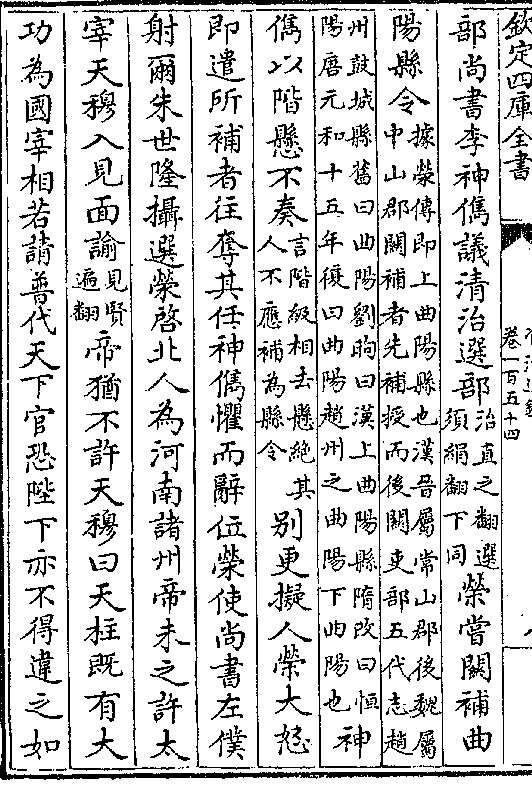 欽定四庫全書
卷一百五十四
部尚書李神儁議清治選部治直之翻選須絹翻下同榮嘗關補曲
陽縣令據榮傳即上曲陽縣也漢晉屬常山郡後魏屬中山郡關補者先補授而後關吏部五代志趙
州鼓城縣舊曰曲陽劉昫曰漢上曲陽縣隋改曰恒陽唐元和十五年復曰曲陽趙州之曲陽下曲陽也神
儁以階懸不奏言階級相去懸絕其人不應補為縣令別更擬人榮大怒
即遣所補者往奪其任神儁懼而辭位榮使尚書左僕
射爾朱世隆攝選榮啓北人為河南諸州帝未之許太
宰天穆入見面諭見賢遍翻帝猶不許天穆曰天柱既有大
功為國宰相若請普代天下官恐陛下亦不得違之如